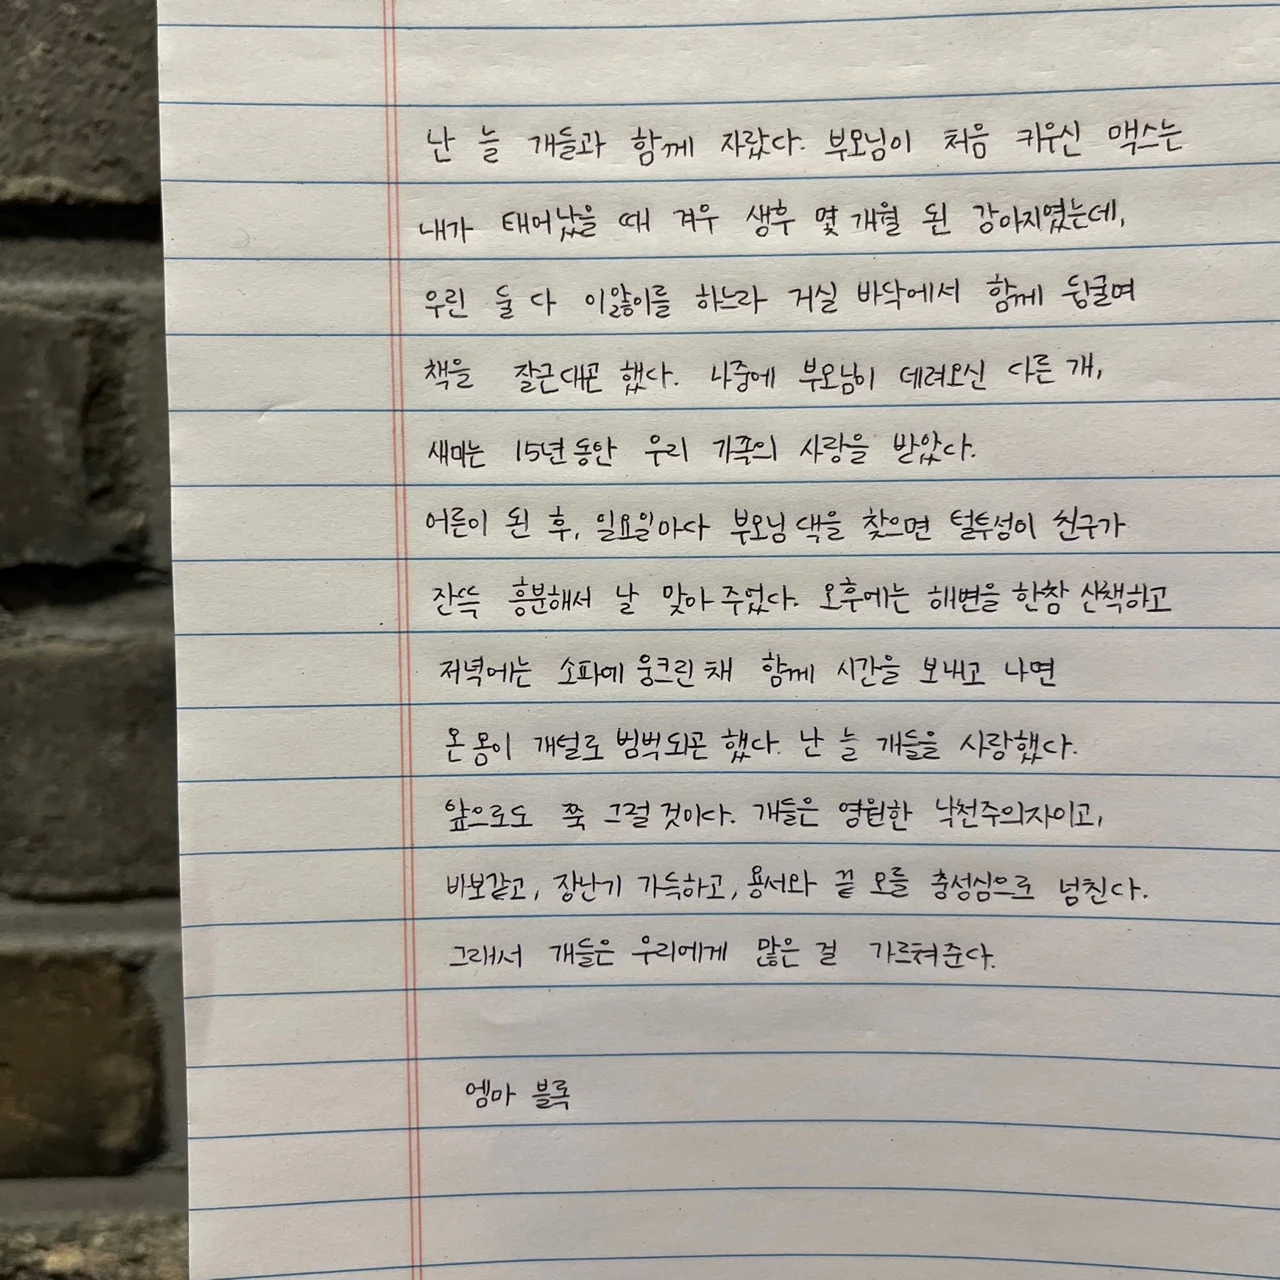 난 늘 개들과 함께 자랐다. 부모님이 처음 키우신 맥스는
내가 태어났을 때 겨우 생후 몇 개월 된 강아지였는데,
우린 둘 다 이앓이를 하느라 거실 바닥에서 함께 뒹굴며
책을 잘근대곤 했다. 나중에 부모님이 데려오신 다른 개,
새미는 15년 동안 우리 가족의 사랑을 받았다.
어른이 된 후, 일요일마다 부모님 댁을 찾으면 털투성이 친구가
잔뜩 흥분해서 날 맞아 주었다. 오후에는 해변을 한참 산책하고
저녁에는 소파에 웅크린 채 함께 시간을 보내고 나면
온 몸이 개털로 범벅되곤 했다. 난 늘 개들을 사랑했다.
앞으로도 쭉 그럴 것이다. 개들은 영원한 낙천주의자이고,
바보같고, 장난기 가득하고, 용서와 끝 모를 충성심으로 넘친다.
그래서 개들은 우리에게 많은 걸 가르쳐준다.
엠마 블록